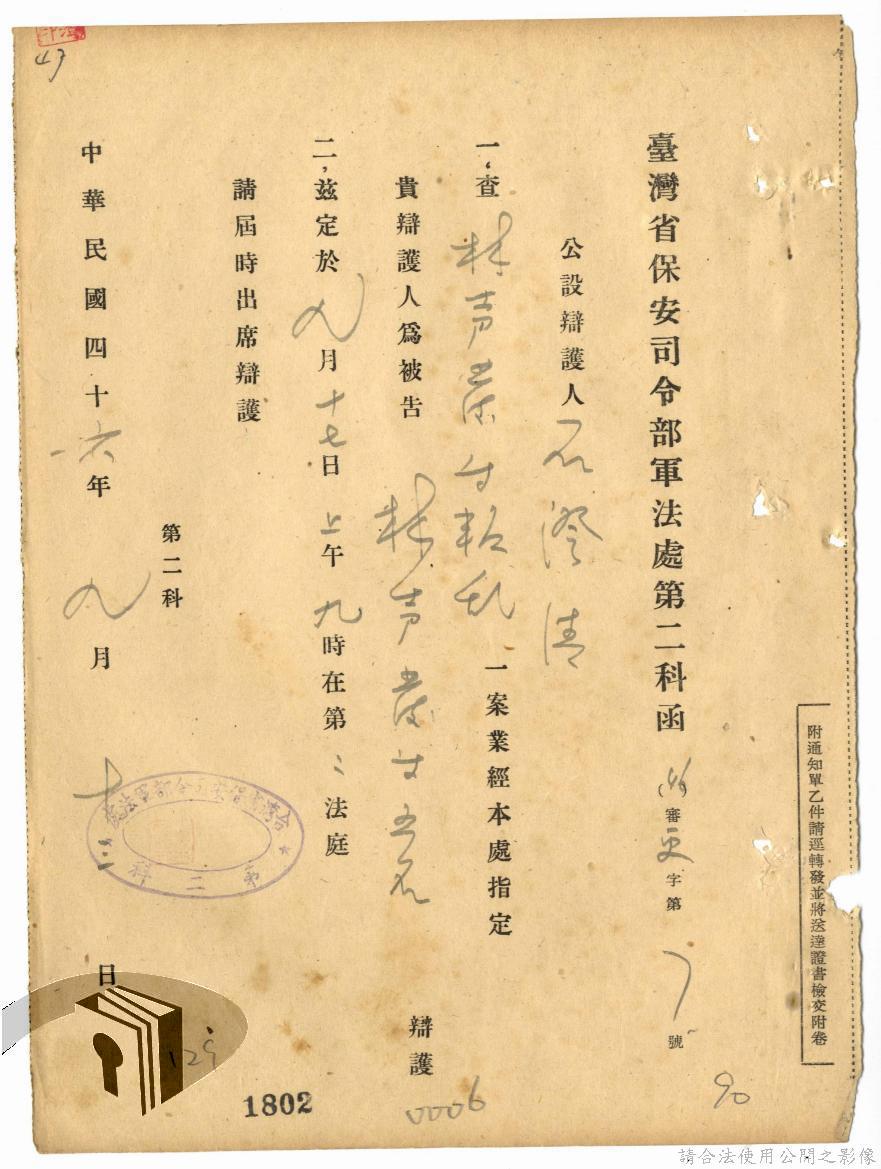 附通知單乙件請逕轉發並將送達證書檢交附卷
臺灣省保安司令部軍法處第二科函 審更字第 號
公設辯護人 石澄清
一,查 林声發等叛乱 一案業經本處指定
貴辯護人爲被告 林声發等五名 辯護
二,茲定於九月十七日上午九時在第 法庭
請屆時出席辯護
第二科
中華民國四十六年九月十 日
台灣省保安司令部軍法處
第二科
47
129
1802
0006
90
請合法使用公開之影像